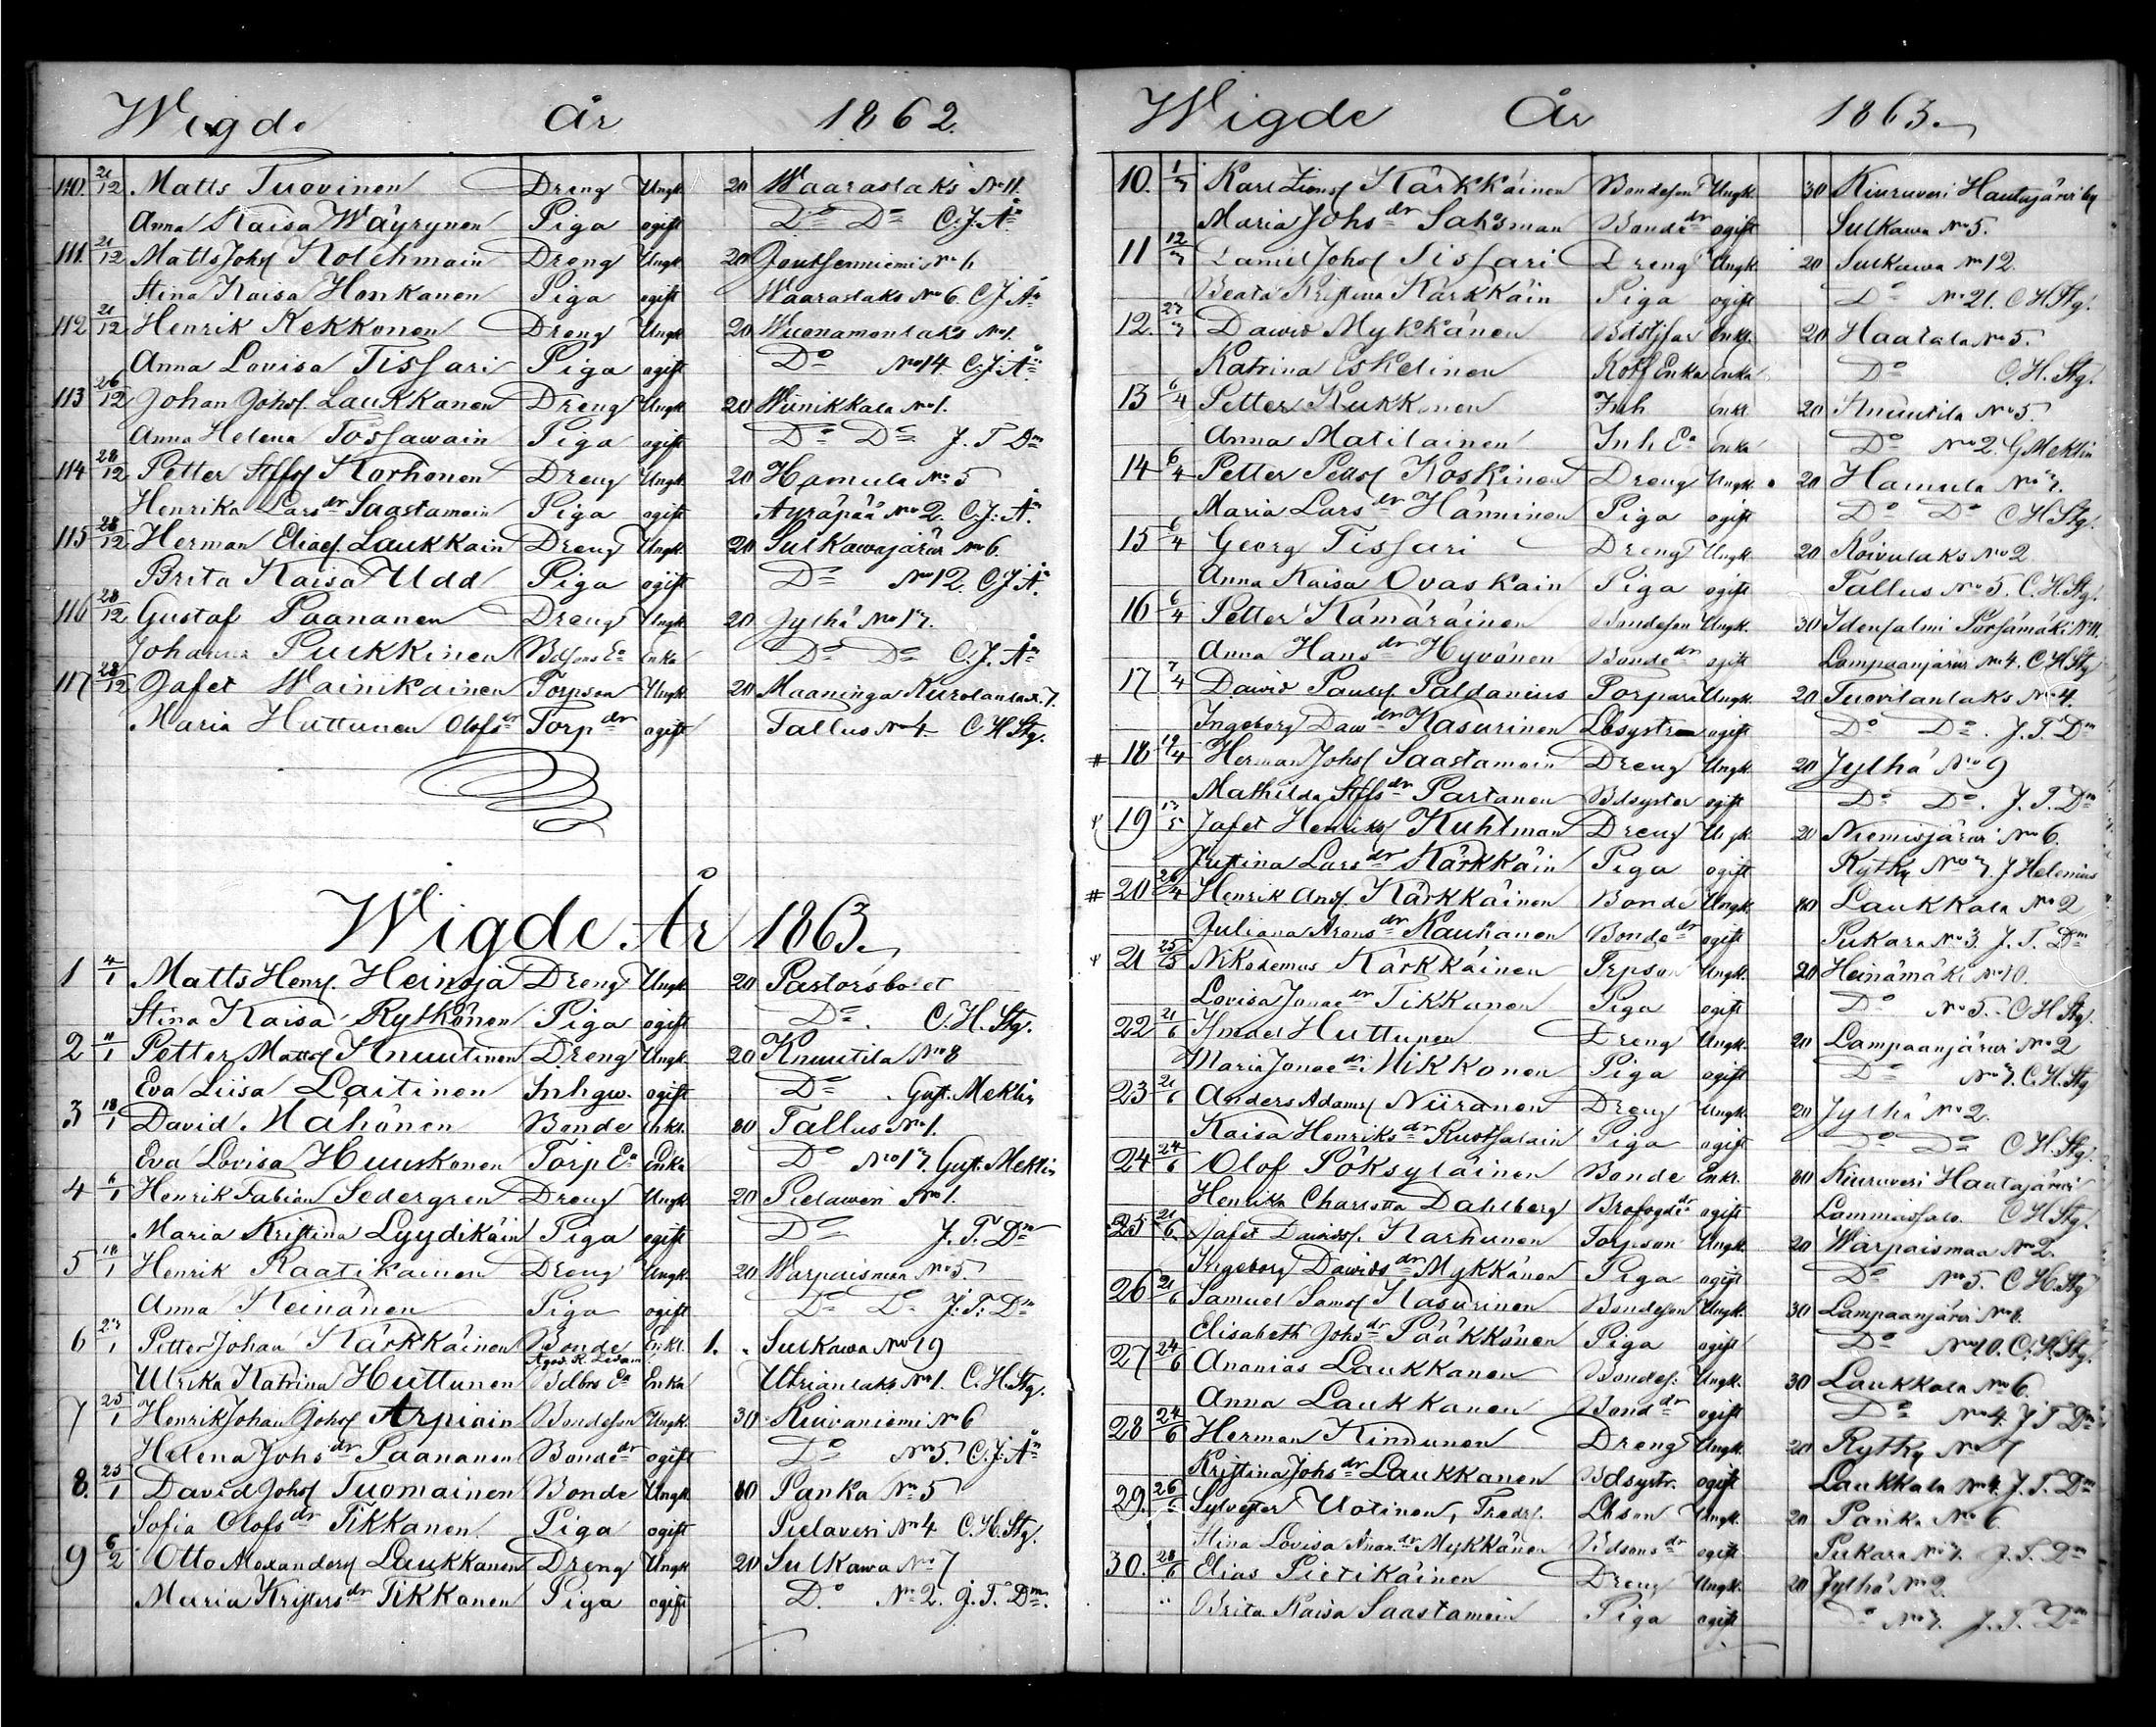 Wigde År 1862.
110. 21/12 Matts Tuovinen Dreng Ungk. 20 Waaraslaks No 11.
Anna Kaisa Wäyrynen Piga ogift Do Do C.J.Ån
111. 21/12 Matts Johsf Kolehmain Dreng Ungk. 20 Joutsenniemi No 6
Stina Kaisa Honkanen Piga ogift Waaraslaks No 6. C.J.Ån
112 21/12 Henrik Kekkonen Dreng Ungk 20 Wuonamonlaks No 1.
Anna Lovisa Tissari Piga ogift Do No 14 C.J.Ån
113 26/12 Johan Johsf. Laukkanen Dreng Ungk 20 Winikkala No 1.
Anna Helena Tossawain Piga ogift Do Do J.T.Dm
114 28/12 Petter Stffsf Korhonen Dreng Ungk. 20 Hamula No 5
Henrika Larsdr Saastamoin Piga ogift Äyräpää No 2. C.J.Ån
115 28/12 Herman Eliasf. Laukkain Dreng Ungk. 20 Sulkawajärvi No 6.
Brita Kaisa Udd Piga ogift Do No 12. C.J.Ån
116 28/12 Gustaf Paananen Dreng Ungk 20 Jylhä No 17.
Johanna Pulkkinen Bdsons Ea Enka Do Do C.J.Ån
117 28/12 Jafet Wainikainen Torpson Ungk. 20 Maaninga Kurolanlaks 7.
Maria Huttunen Olofsdr Torpdr ogift Tallus No 4 C.H.Stg.
Wigde År 1863.
1 4/1 Matts Henrf. Heinoja Dreng Ungk. 20 Pastorsbolet
Stina Kaisa Rytkönen Piga ogift Do. C.H.Stg.
2 11/1 Petter Mattsf Knuutinen Dreng Ungk. 20 Knuutila No 8
Eva Liisa Laitinen Inhgw. ogift Do. Gust. Meklin
3 18/1 David Mähönen Bonde Enkl. 80 Tallus No 1.
Eva Lovisa Huuskonen Torp Ea Enka Do No 17. Gust. Meklin
4 6/1 Henrik Fabian Sedergren Dreng Ungk. 20 Pielawesi No 1.
Maria Kristina Lyydikäin Piga ogift Do J.T.Dm
5 18/1 Henrik Raatikainen Dreng Ungk. 20 Warpaismaa No 5.
Anna Keinänen Piga ogift Do Do J.T.Dm
6 23/1 Petter Johan Kärkkäinen Bonde Enkl. 1. Sulkawa No 19
Ulrika Katrina Huttunen Bdbrs Ea Enka Utrianlaks No 1. C.H.Stg.
7 25/1 Henrik Johan Johsf Arpiain Bondeson Ungk. 30 Kuivaniemi No 6
Helena Johsdr Paananen Bondedr ogift Do No 5. C.J.Ån
8. 25/1 David Johsf Tuomainen Bonde Ungk. 80 Panka No 5
Sofia Olofsdr Tikkanen. Piga ogift Pielavesi No 4 C.H.Stg.
9 6/2 Otto Alexandersf Laukkanen Dreng Ungk 20 Sulkawa No 7
Maria Kristersdr Tikkanen Piga ogift Do No 2. J.T.Dm.
Wigde År 1863.
10. 1/3 Karl Kärkkäinen Bondeson Ungk. 30 Kiuruvesi Hautajärvi by
Maria Johsdr Sahsman Bondedr ogift Sulkawa No 5.
11 12/3 Daniel Johsf Tissari Dreng Ungk. 20 Sulkawa No 12.
Beata Kristina Kärkkäin Piga ogift Do No 21. C.H.Stg.
12. 27/3 Dawid Mykkänen Enkl. 20 Haatala No 5.
Katrina Eskelinen Enka Enka Do C.H.Stg.
13 6/4 Petter Kukkonen Inh Enkl. 20 Knuutila No 5.
Anna Matilainen Inh Ea Enka Do No 2. G Meklin
14 6/4 Petter Pettsf Koskinen Dreng Ungk. 20 Hamula No 7.
Maria Larsdr Hänninen Piga ogift Do Do C H Stg.
15 6/4 Georg Tissari Dreng Ungk. 20 Koivulaks No 2
Anna Kaisa Ovaskain Piga ogift Tallus No 5. C.H.Stg.
16 6/4 Petter Kämäräinen Bondeson Ungk. 30 Idensalmi Porsämäki No 11.
Anna Hansdr Hyvönen Bondedr ogift Lampaanjärvi No 4. C.H.Stg
17 7/4 Dawid Paulsf Paldanius Torpare Ungk. 20 Tuovilanlaks No 4.
Ingeborg Dawdr Kasurinen Lbsystr ogift Do Do. J.T.Dm
# 18 19/4 Herman Johsf Saastamoin Dreng Ungk. 20 Jylhä No 9
Mathilda Stffsdr Partanen Bdsyster ogift Do Do. J.T.Dm
19 17/5 Jafet Henriksf Kuhlman Dreng Ungk. 20 Niemisjärvi No 6.
Kristina Larsdr Kärkkäin Piga ogift Rytky No 7. J Helenius
# 20 26/4 Henrik Andf. Kärkkäinen Bonde Ungk. 80 Laukkala No 2
Juliana Aronsdr Kauhanen Bondedr ogift Pukara No 3. J.T.Dm
21 25/5 Nikodemus Kärkkäinen Trpson Ungk. 20 Heinämäki No 10.
Lovisa Jonaedr Tikkanen Piga ogift Do No 5. C.H.Stg.
22 21/6 Ismael Huttunen Dreng Ungk. 20 Lampaanjärvi No 2
Maria Jonaedr Mikkonen Piga ogift Do No 7. C.H.Stg
23 21/6 Anders Adamsf Niiranen Dreng Ungk. 20 Jylhä No 2.
Kaisa Henriksdr Ruotsalain Piga ogift Do Do C H Stg.
24 24/6 Olof Pöksyläinen Bonde Enkl. 80 Kiuruvesi Hautajärvi
Henrika Charlotta Dahlberg Brofogdedr ogift Lammassalo. C H Stg.
25 21/6 Jafet Davidsf. Karhunen Torpson Ungk. 20 Warpaismaa No 2.
Ingeborg Dawidsdr Mykkänen Piga ogift Do No 5. C.H.Stg
26 21/6 Samuel Samsf Kasurinen Bondeson Ungk. 30 Lampaanjärvi No 8.
Elisabeth Johsdr Pääkkönen Piga ogift Do No 10. C.H.Stg.
27 24/6 Ananias Laukkanen Bondes. Ungk. 30 Laukkala No 6.
Anna Laukkanen Bonddr ogift Do No 4. J.T.Dm
28 24/6 Herman Kinnunen Dreng Ungk. 20 Rytky No 7
Kristina Johsdr Laukkanen Bdsystr. ogift Laukkala No 4. J.T.Dm
29. 26/6 Sylvester Uotinen, Fredrf. Lbson Ungk. 20 Panka No 6.
Stina Lovisa Mykkänen Bdsonsdr ogift Pukara No 7. J.T.Dm
30. 28/6 Elias Pietikäinen Dreng Ungk. 20 Jylhä No 2.
Brita Kaisa Saastamoin Piga ogift Do No 7. J.T.Dm